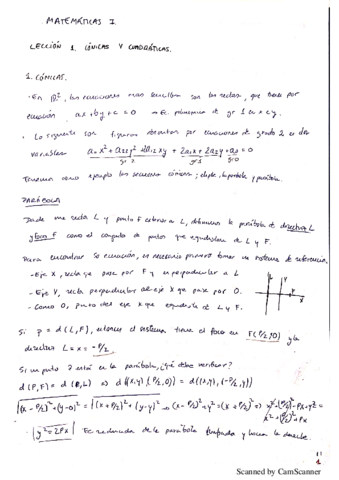 MATEMÁTICAS I.
LECCIÓN 1. CÓNICAS Y CUADRÁTICAS.
1. CÓNICAS.
- En R², las ecuaciones más sencillas son las rectas, que tienen por
ecuación ax + by + c = 0 → Ec. polinómica de gr 1 en x e y.
- Lo siguiente son figuras descritas por ecuaciones de grado 2 en dos
variables a₁₁x² + a₂₂y² + 2a₁₂xy + 2a₁x + 2a₂y + a₀ = 0
gr 2 gr 1 gr 0
Tenemos como ejemplo las secciones cónicas; elipse, hipérbola y parábola.
PARÁBOLA
Dada una recta L y punto F exterior a L, definimos la parábola de directriz L
y foco F como el conjunto de puntos que equidistan de L y F.
Para encontrar su ecuación, es necesario primero tomar un sistema de referencia.
- Eje X, recta que pase por F y es perpendicular a L
- Eje Y, recta perpendicular al eje X que pase por O.
- Como O, punto del eje X que equidista de L y F.
Si p = d(L,F), entonces el sistema tiene el foco en F(P/2, 0) y la
directriz L ≡ x = -P/2
Si un punto P está en la parábola, ¿qué debe verificar?
d(P,F) = d(P,L) ⇒ d((x,y),(P/2,0)) = d((x,y),(-P/2,y))
√(x - P/2)² + (y-0)² = √(x + P/2)² + (y-y)² ⇒ (x - P/2)² + y² = (x + P/2)² ⇒ x² + (P/2)² - Px + y² =
x² + (P/2)² + Px
y² = 2Px Ec. reducida de la parábola
1
Scanned by CamScanner